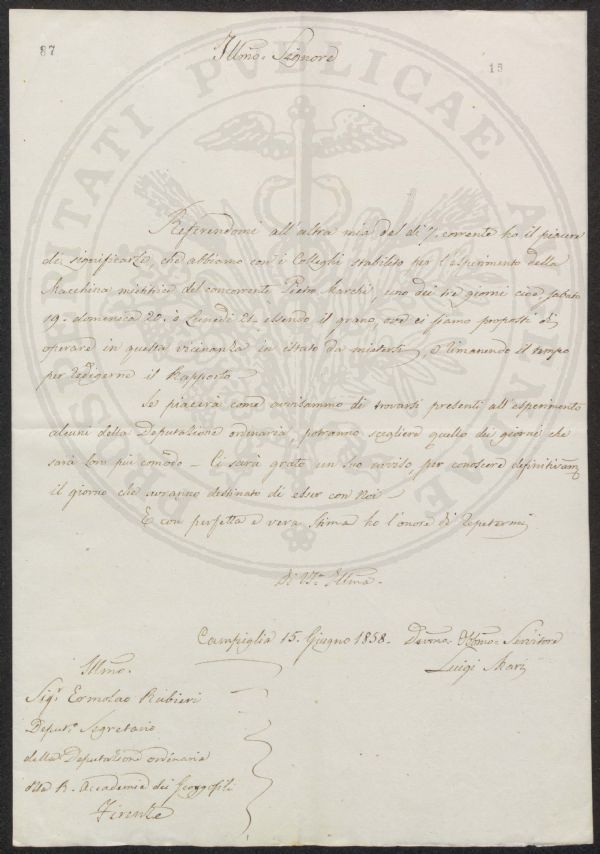 87
Illmo. Signore
13
PROSPERITATI PVBLICAE AVGENDAE
Referendomi all'altra mia del dì 7. corrente ho il piacere
di significarle, che abbiamo con i Colleghi stabilito per l'esperimento della
Macchina mietrice del concorrente Pietro Marchi, uno dei tre giorni cioè, sabato
19. domenica 20. e Lunedì 21. essendo il grano, ove ci siamo proposti di
operare in questa vicinanza in istato da mietersi, e rimanendo il tempo
per redigerne il Rapporto.
Se piacerà come avvisammo di trovarsi presenti all'esperimento
alcuni della Deputazione ordinaria, potranno scegliere quello dei giorni che
sarà loro più comodo. Ci sarà grato un suo avviso per conoscere
il giorno che avranno destinato di esser con Noi.
E con perfetta e vera stima ho l'onore di repetermi
Di V.a Illma.
Campiglia 15. Giugno 1858. Devmo. Obbmo. Servitore
Luigi
Illmo.
Sigr. Ermolao Rubieri
Deput.o Segretario
della Deputazione ordinaria
della R. Accademia dei Georgofili
Firenze